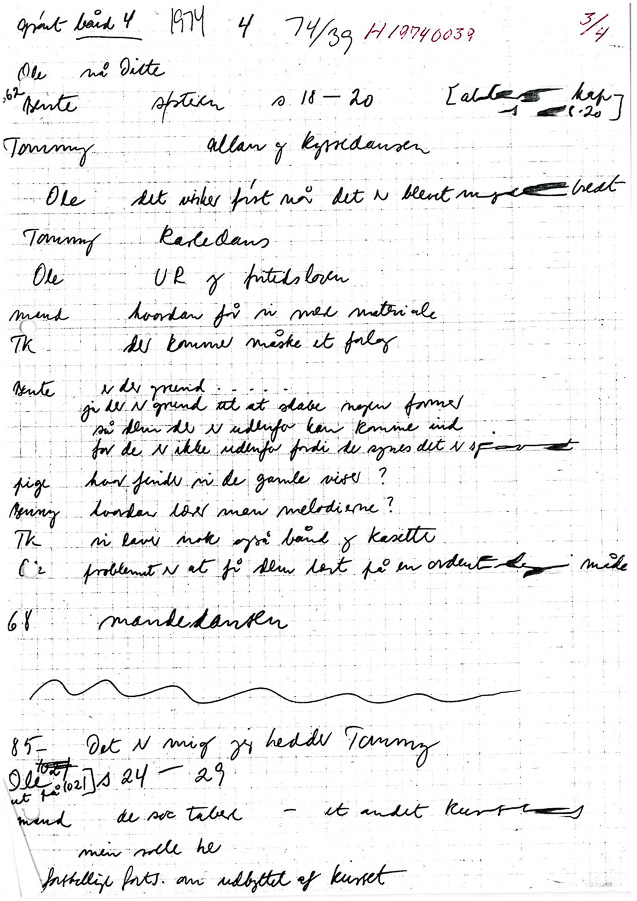 grønt bånd 4 1974 4 74/39 H19740039 3/4
Ole nå Ditte
62 Bente s 18 – 20 kap
s. 20]
Tommy Allan og Kyssedansen
Ole det virker først nå det er blevet bredt
Tommy Karledans
Ole UR og fritidsloven
mand hvordan får vi med materiale
TK der kommer måske et forlag
Bente er der grund . . . . . .
jo der er grund til at skabe nogen former
så dem der er udenfor kan komme ind
for de er ikke udenfor fordi de synes det er
pige hvor finder vi de gamle viser?
Benny hvordan lærer man melodierne?
TK vi laver nok også bånd og kasette
problemet er at få dem lært på en måde
68 mandedansen
85– Det er mig jeg hedder Tommy
Ole s 24 – 29
ut på [021]
mand de soc tabere – et andet
men solle he
forskellige forts. om udbyttet af kurset